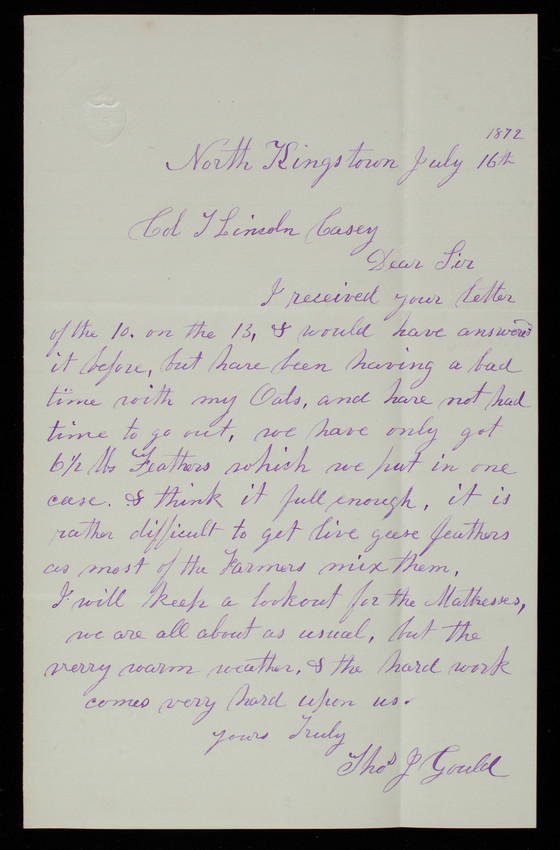 1872
North Kingstown July 16th
Col T Lincoln Casey
Dear Sir
I received your letter
of the 10. on the 13, & would have answered
it before, but have been having a bad
time with my Oats, and have not had
time to go out, we have only got
6 1/2 lbs Feathers which we put in one
case. & think it full enough, it is
rather difficult to get live geese feathers
as most of the Farmers mix them,
I will keep a lookout for the Mattresses,
we are all about as usual, but the
verry warm weather, & the hard work
comes very hard upon us.
yours Truly
Thos J Gould